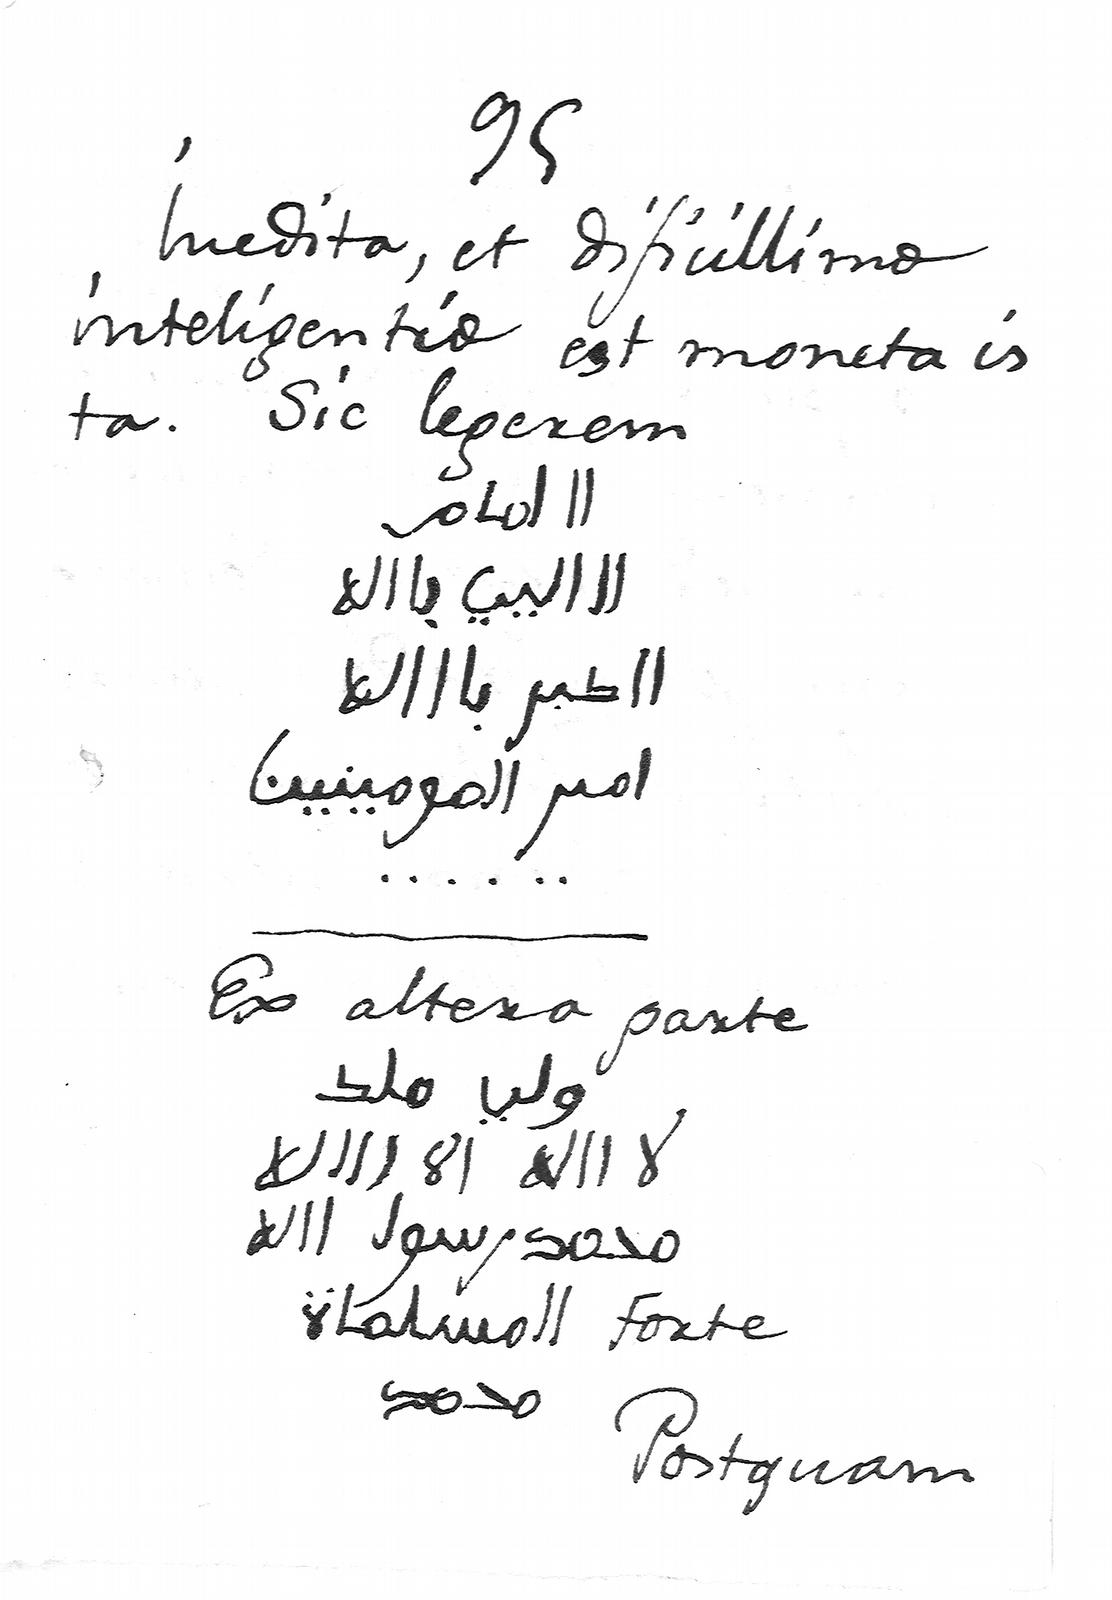 95
Inedita, et dificillimæ
inteligentiæ est moneta is
ta. Sic legerem
الامام
باالله
باالله
امير المومينيين
. . . . . .
Ex altera parte
ولي ملد
لا االه الا االله
محمد رسول االله
المسلماة Forte
محمد
Postquam